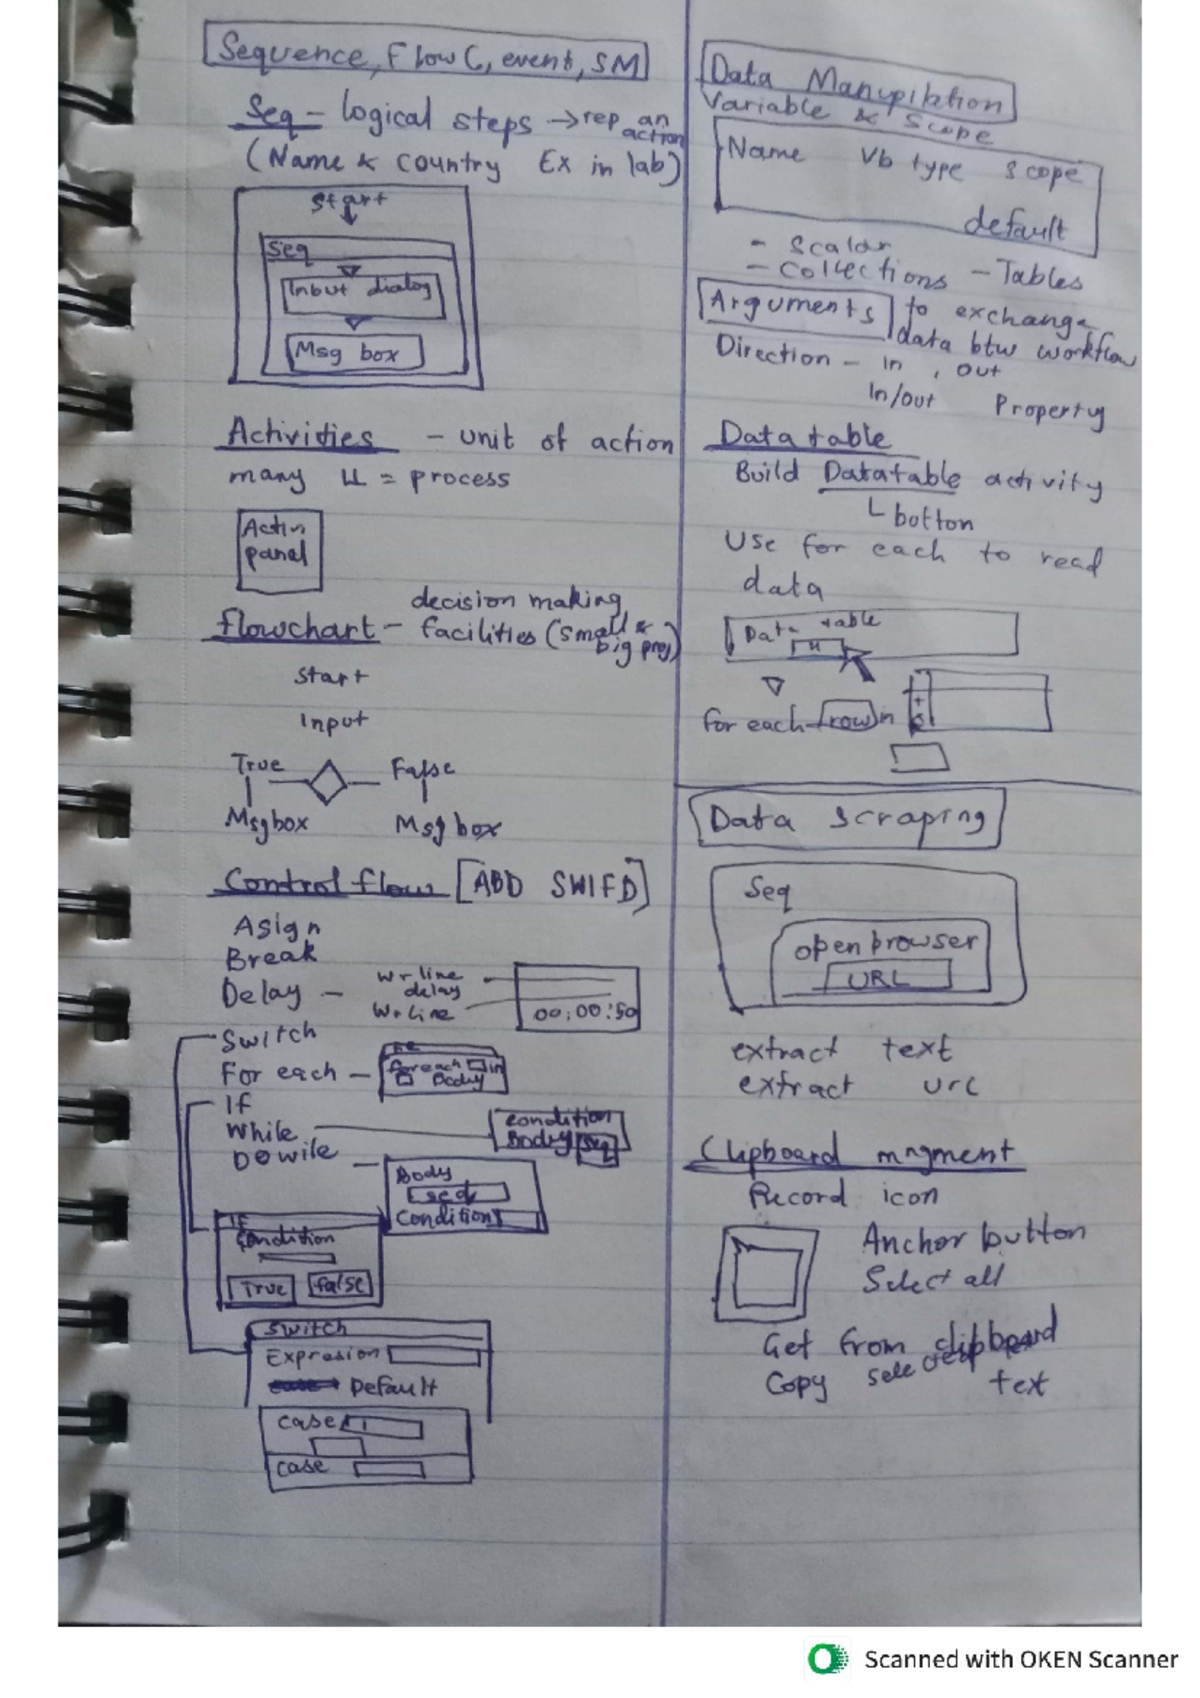 Sequence, Flow C, event, SM
Seq - logical steps → rep an action
(Name & country Ex in lab)
Start
Seq
Input dialog
Msg box
Activities - unit of action
many u = process
Actin
panel
decision making
flowchart - facilities (small & big proj)
Start
Input
True False
Msgbox Msg box
Control flow [ABD SWIFD]
Asign
Break
Delay - Wr line
delay
Wr Line
00:00:50
Switch
For each - foreach in
Body
If
While
condition
Body Seq
DOwile
Body
seq
Condition
If
Condition
True false
Switch
Expresion
Default
case
case
Data Manupilation
Variable & Scope
Name Vb type scope
default
- Scalar
- Collections - Tables
Arguments to exchange
data btw workflow
Direction - in , out
In/out Property
Datatable
Build Datatable activity
button
Use for each to read
data
Data table
for each row in
Data Scraping
Seq
openbrowser
URL
extract text
extract url
Clipboard mngment
Record icon
Anchor button
Select all
Get from clipboard
Copy selected text
Scanned with OKEN Scanner